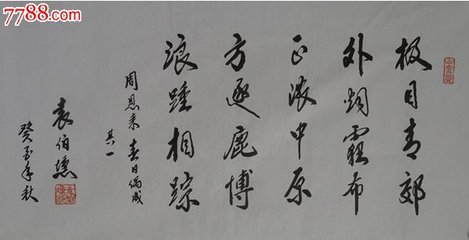 7788.com
极目青郊
外烟霾布
正浓中原
方逐鹿博
浪踵相踪
周恩来春日偶成
其一
袁伯
癸年秋